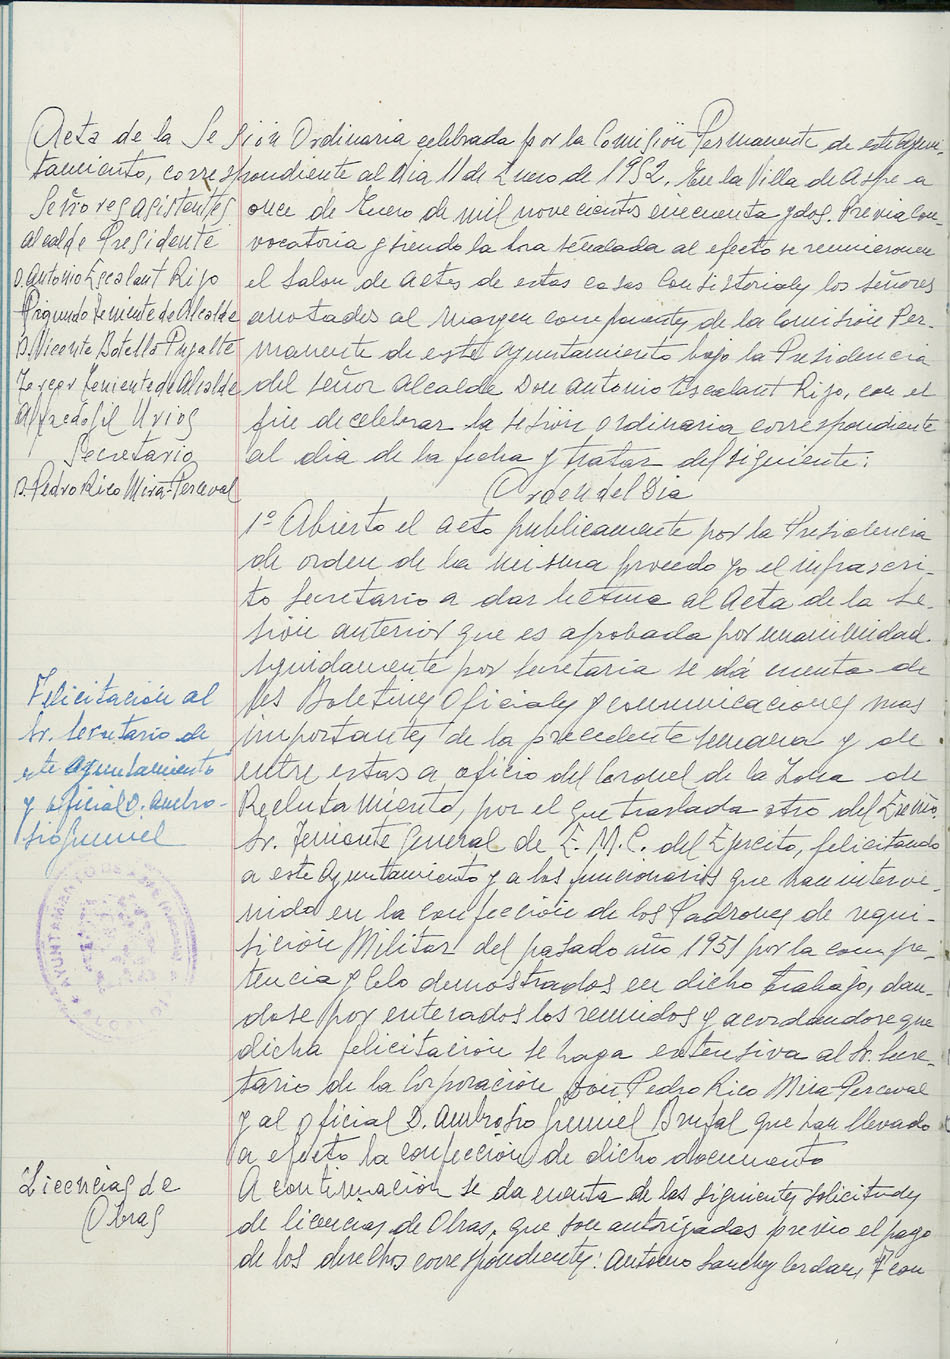 Acta de la Sesión Ordinaria celebrada por la Comisión Permanente de este Ayun-
tamiento, correspondiente al dia 11 de Enero de 1952. En la Villa de Aspe a
Señores asistentes
Alcalde Presidente
D. Antonio Escalant Rizo
Segundo Teniente de Alcalde
D. Vicente Botella Pujalte
Tercer Teniente de Alcalde
Alfredo Gil Urios
Secretario
D. Pedro Rico Mirá-Perceval
once de Enero de mil novecientos cincuenta y dos. Previa con-
vocatoria y siendo la hora señalada al efecto se reunieron en
el Salon de Actos de estas casas Consistoriales los señores
anotados al margen componentes de la Comisión Per-
manente de este Ayuntamiento bajo la Presidencia
del señor Alcalde Don Antonio Escalant Rizo, con el
fin de celebrar la sesión ordinaria correspondiente
al dia de la fecha y tratar del siguiente:
Orden del Dia
1º Abierto el acto publicamente por la Presidencia
de orden de la misma procedo yo el infrascri-
to Secretario a dar lectura al Acta de la Se-
sión anterior que es aprobada por unanimidad.
Seguidamente por Secretaria se dá cuenta de
los Boletines Oficiales y comunicaciones mas
importantes de la precedente semana y de
entre estas a oficio del Coronel de la Zona de
Reclutamiento, por el que traslada otro del Excmo.
Sr. Teniente General de E. M. C. del Ejercito, felicitando
a este Ayuntamiento y a los funcionarios que han interve-
nido en la confección de los Padrones de requi-
sición Militar del pasado año 1951 por la compe-
tencia y celo demostrados en dicho trabajo, dan-
dose por enterados los reunidos y acordandose que
dicha felicitación se haga extensiva al Sr. Secre-
tario de la Corporación Don Pedro Rico Mira-Perceval
y al oficial D. Ambrosio Gumiel Brufal que han llevado
a efecto la confección de dicho documento
Felicitación al
Sr. Secretario de
este Ayuntamiento
y oficial D. Ambro-
sio Gumiel
AYUNTAMIENTO DE ASPE
Licencias de
Obras
A continuación se da cuenta de las siguientes solicitudes
de licencias de Obras, que son autorizadas previo el pago
de los derechos correspondientes: Antonio Sanchez Cerdan, 7 con